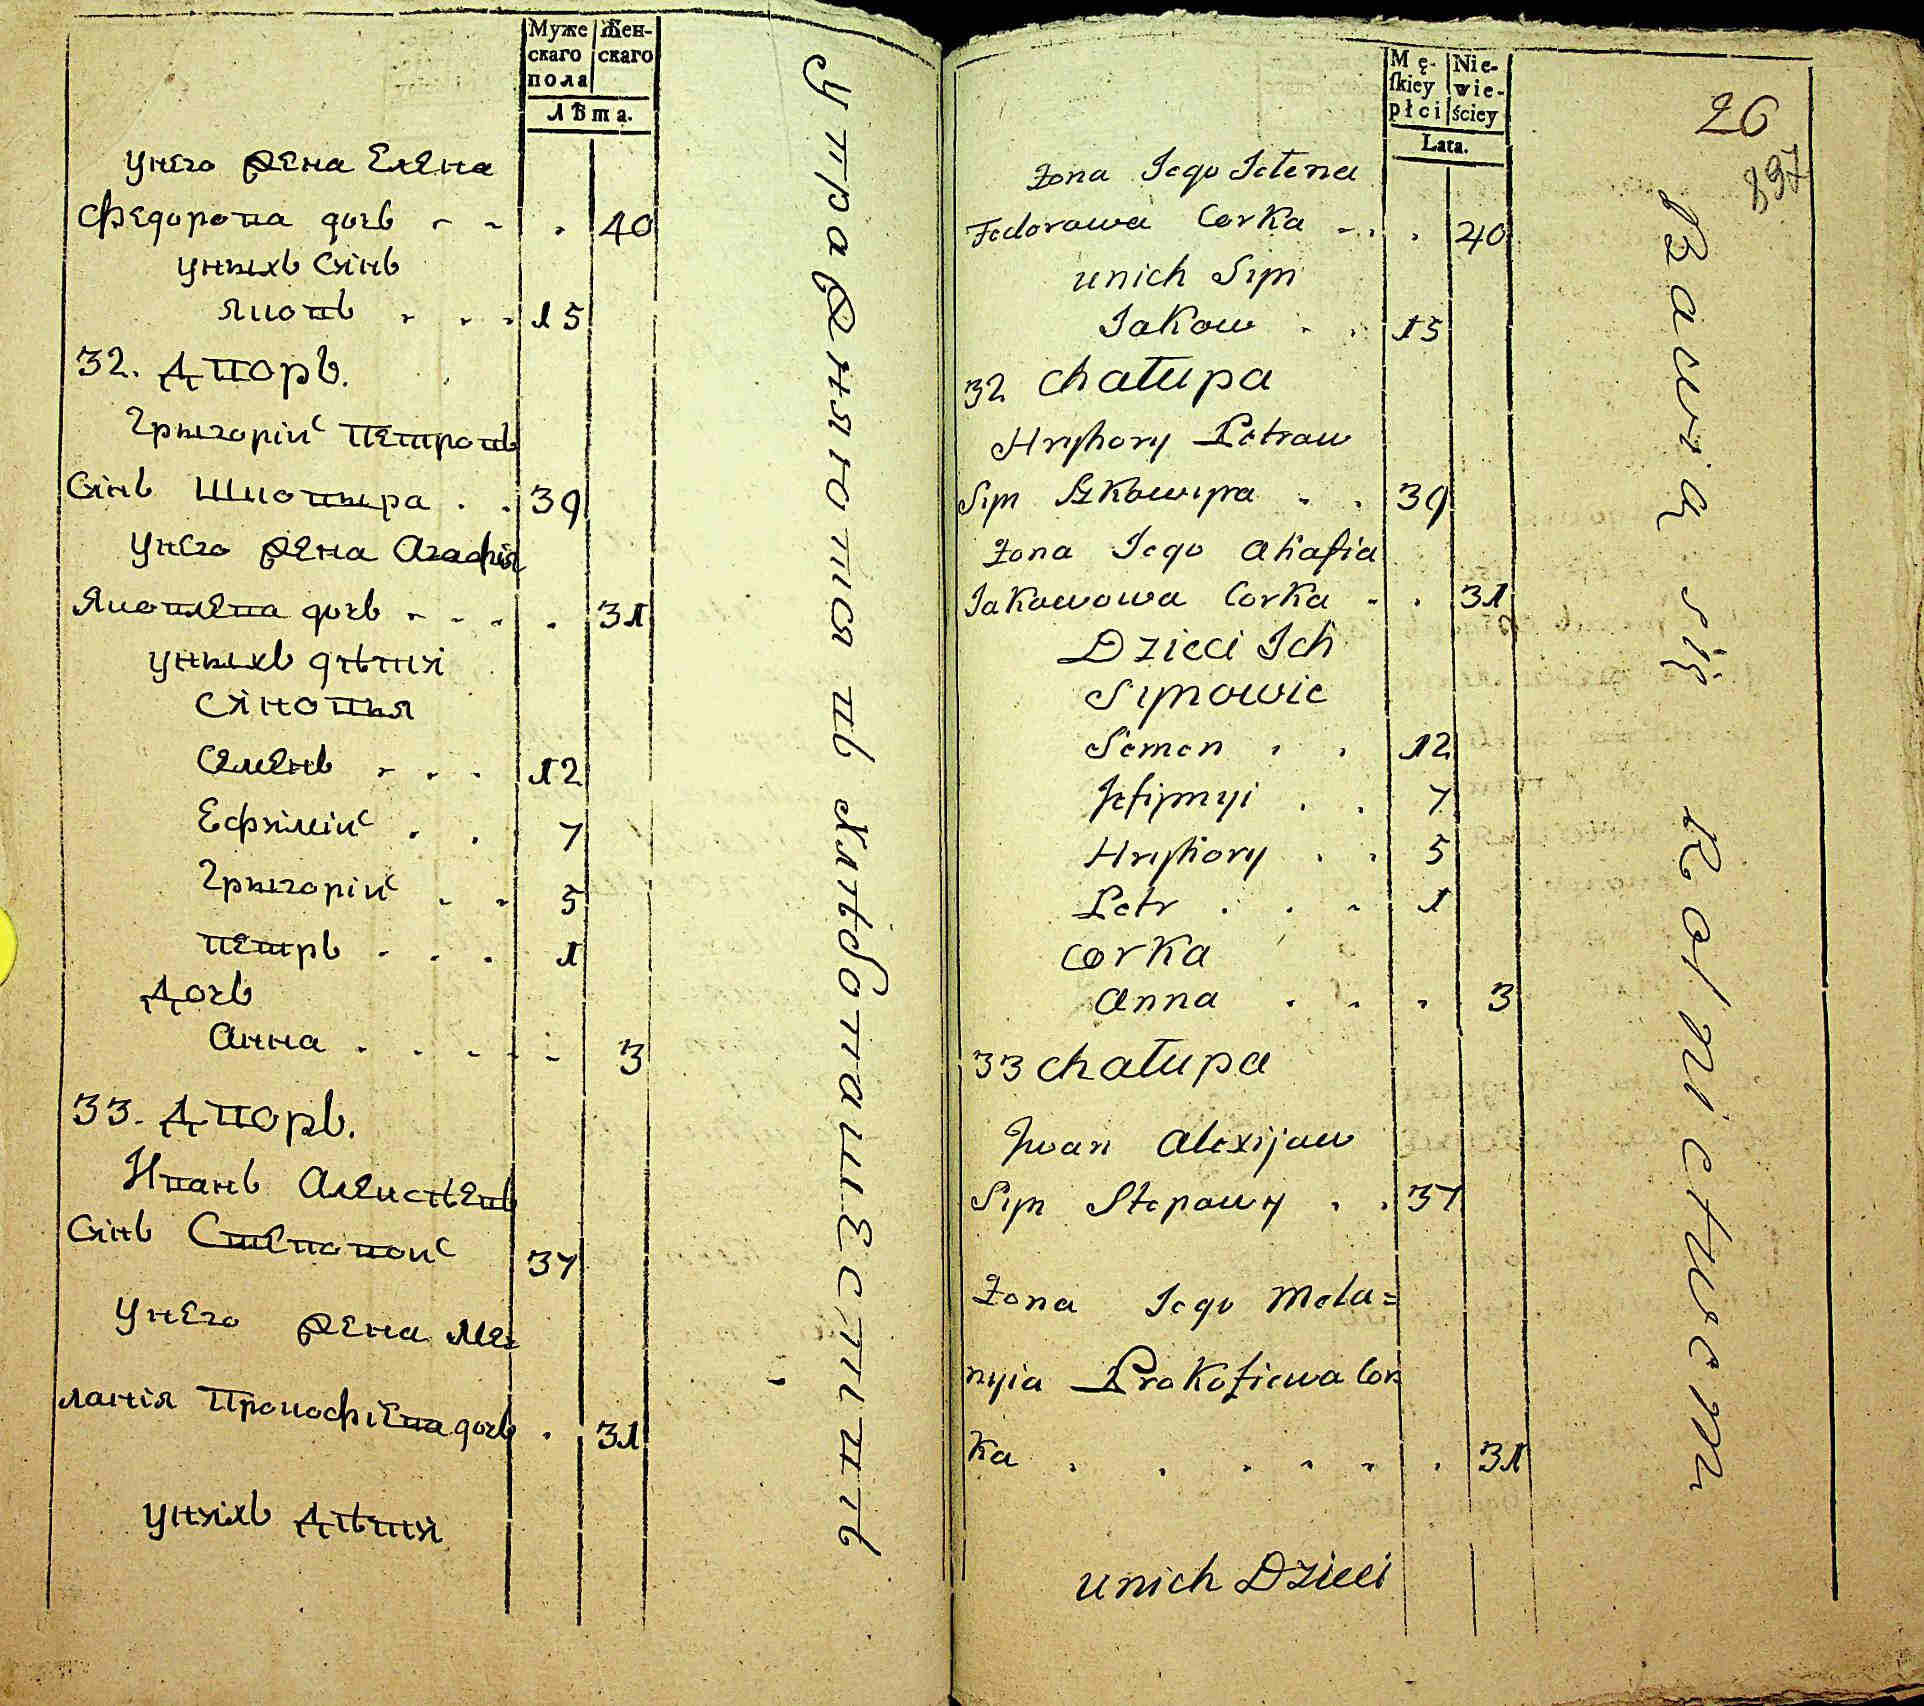 Муже
скаго
пола
Жен-
скаго
Лѣта.
унего жена Елена
Федорова дочь - - . 40
унихъ Сынъ
Яковъ - - - 15
32. Дворъ.
Грыгоріи Петровъ
Сынъ Шковыра . . 39
унего жена Агафія
Яковлева дочь - - - . 31
уныхъ дѣти
Сыновья
Семенъ - - - 12
Ефиміи . . 7
Грыгоріи - - 5
Петръ - - - 1
Дочь
Анна . . - - - 3
33. Дворъ.
Иванъ Алексѣевъ
Сынъ Степовои 37
унего жена Ме=
ланія Прокофіева дочь . 31
унихъ Дѣти
упражняются въ хлѣбопашествѣ
Mę-
skiey
płci
Nie-
wie-
ściey
Lata.
26
897
Zona Jego Jelena
Fedorowa Corka - . . 40
unich Syn
Jakow - . 15
32 chałupa
Hryhory Petrow
Syn Szkowyra - . 39
Zona Jego Ahafia
Jakowowa Corka - . 31
Dzieci Ich
Synowie
Semen . . 12
Jefimyi . . 7
Hryhory . . 5
Petr . . - 1
corka
Anna . . - 3
33 chałupa
Jwan Alexijow
Syn Stepowy . . 37
Zona Jego Mela=
nyia Prokofiewa Cor
ka . . . . . . 31
unich Dzieci
Bawią się Rolnictwem